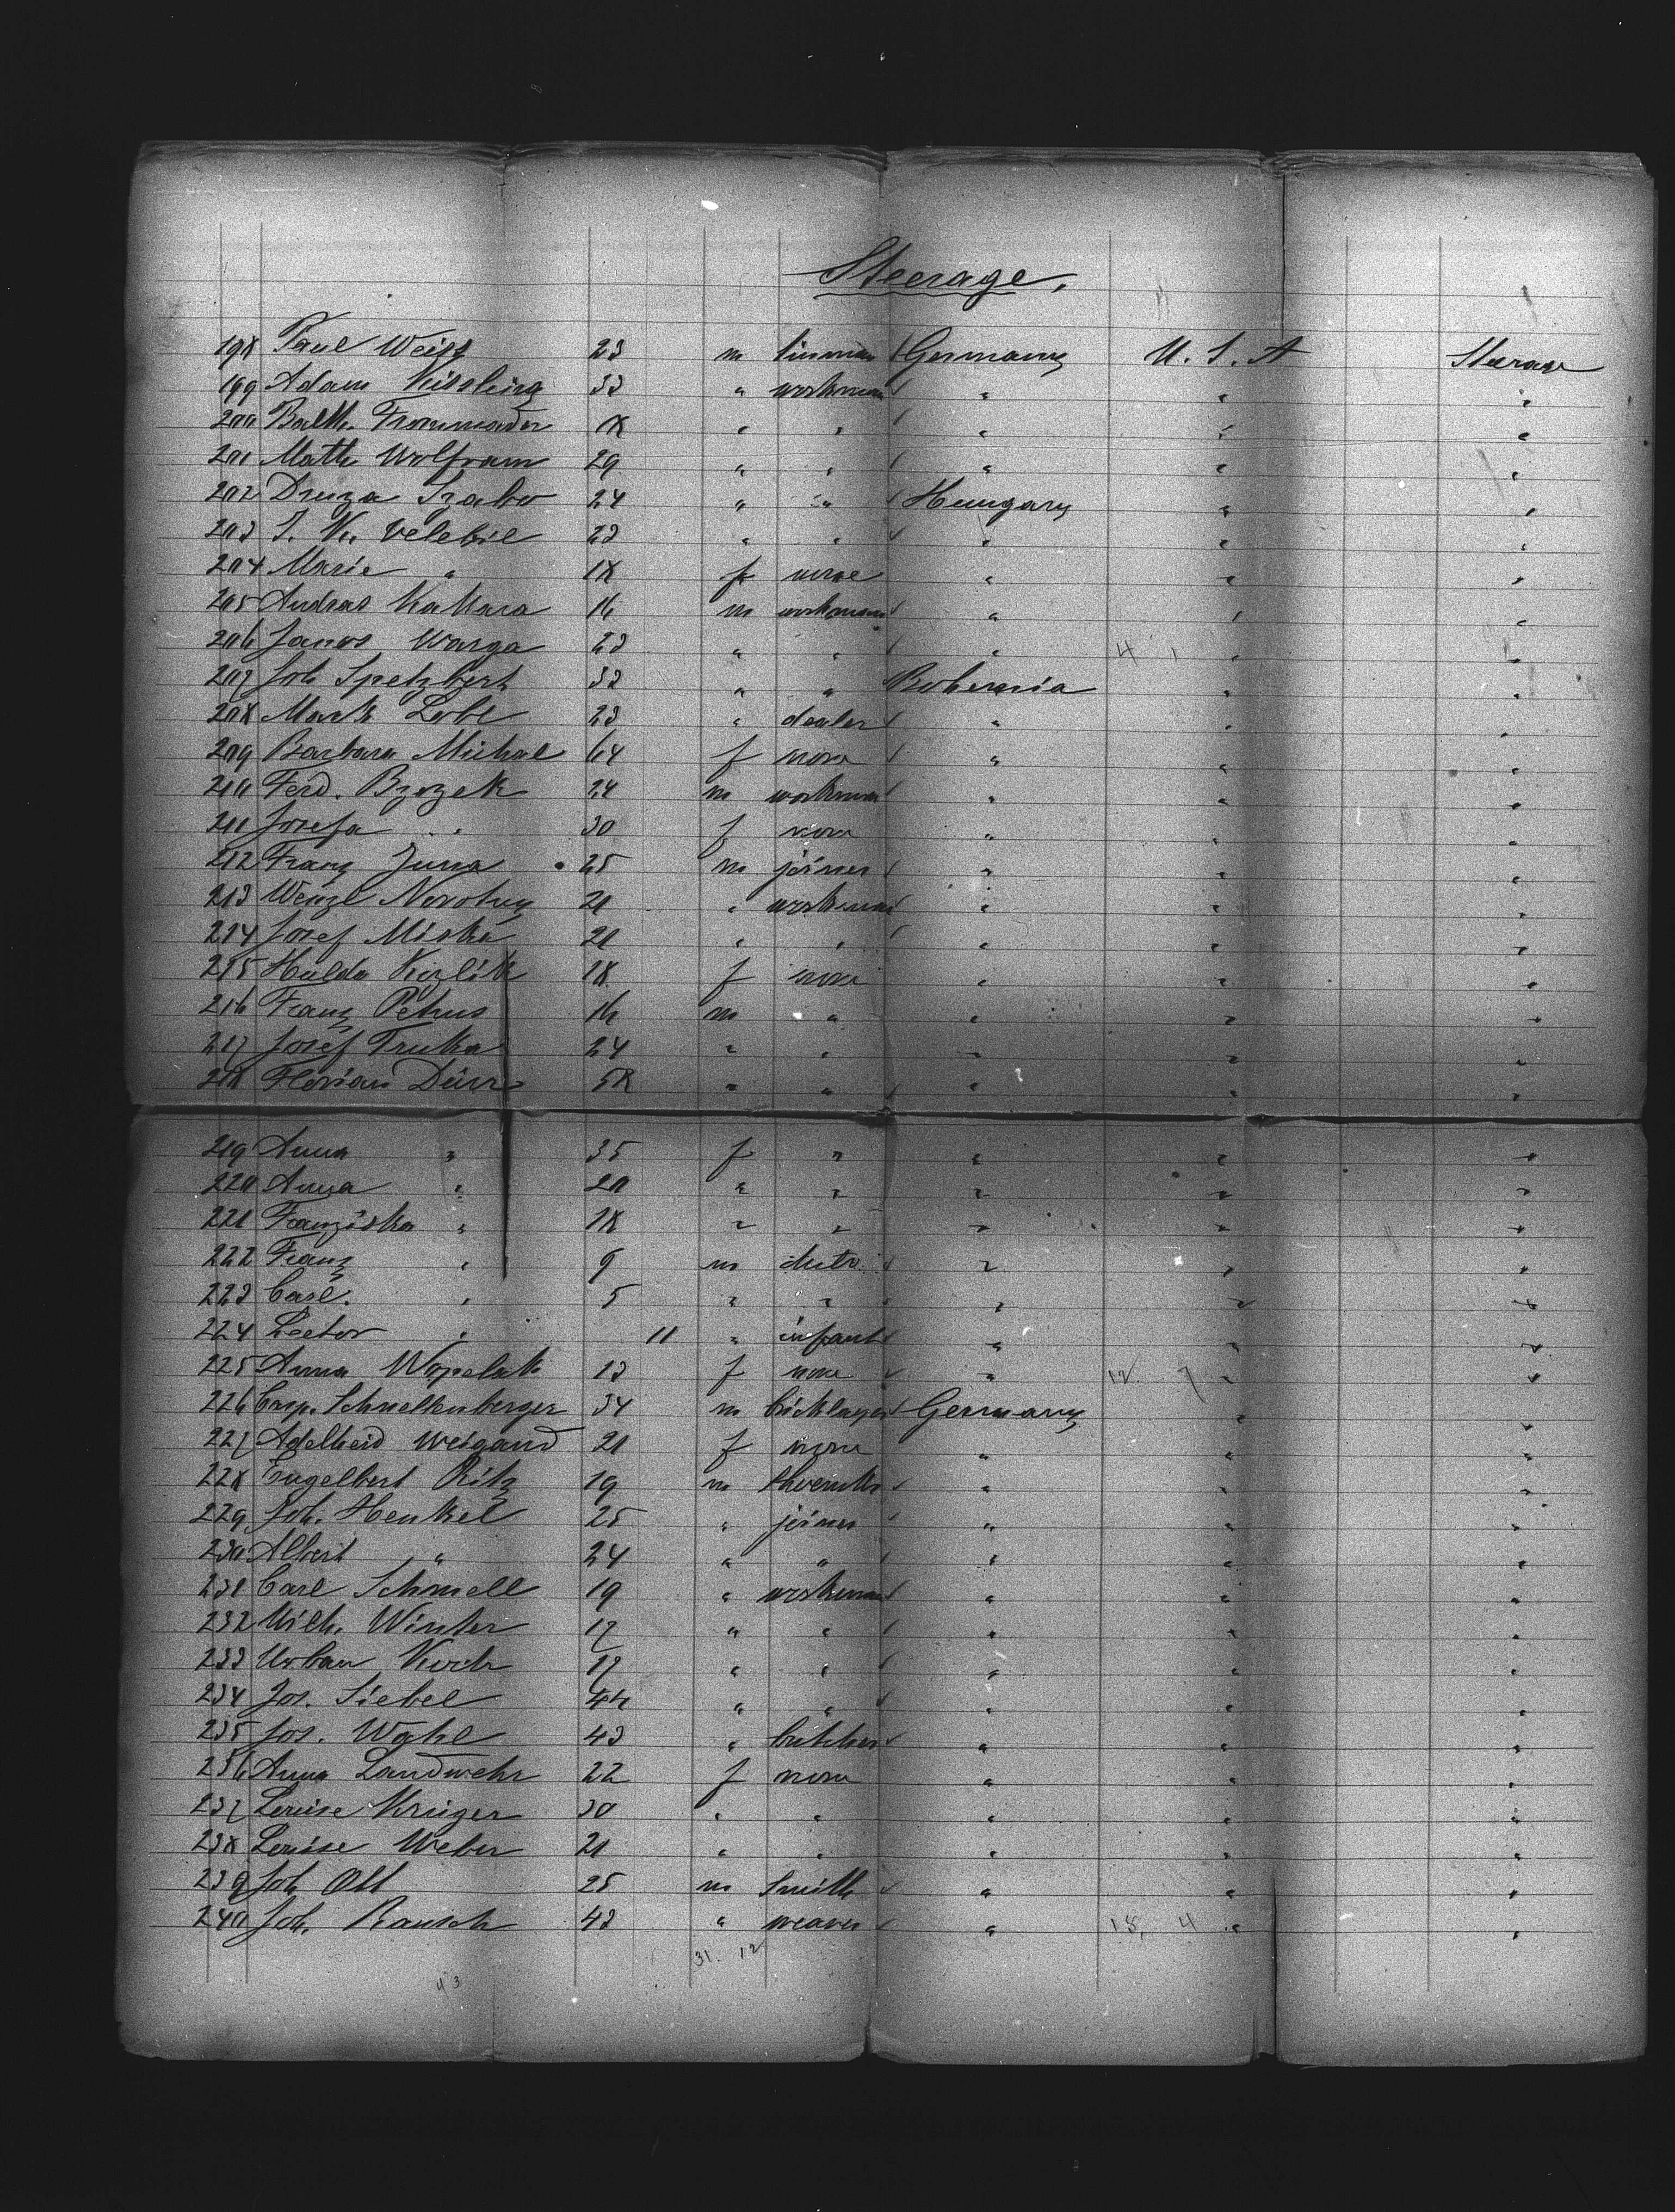 Steerage.
198 Paul Weiss 23 m tinman Germany U. S. A Steerage
199 Adam Kissling 33 " workman " " "
200 Balth. Frommader 18 " " " " "
201 Math Wolfram 29 " " " " "
202 Szabo 24 " " Hungary " "
203 Velebil 23 " " " " "
204 Marie " 18 f none " " "
205 Andras 16 m workman " " "
206 Janos Warga 23 " " " 4 1 " "
207 Joh Spetzbert 32 " " Bohemia " "
208 Mark Lobl 23 " dealer " " "
209 Barbara Michal 64 f none " " "
210 Ferd. Brzozek 24 m workman " " "
211 Josefa " 30 f none " " "
212 Franz Juna 25 m joiner " " "
213 Wenzl Novotny 21 " workman " " "
214 Josef Miska 21 " " " " "
215 Hulda Kozlik 18 f none " " "
216 Franz Petrus 16 m " " " "
217 Josef Truka 24 " " " " "
218 Florian Dürr 58 " " " " "
219 Anna " 35 f " " " "
220 Anna " 20 " " " " "
221 Franziska " 18 " " " " "
222 Franz " 9 m " " "
223 Carl. " 5 " " " " "
224 " 11 " infant " " "
225 Anna Wopelak 13 f none " 12 7 " "
226 Casp. Schnellenberger 34 m bricklayer Germany " "
227 Adelheid Weigand 21 f none " " "
228 Engelbert Ritz 19 m " " "
229 Joh. Henkel 25 " joiner " " "
230 Albert " 24 " " " " "
231 Carl Schmell 19 " workman " " "
232 Wilh. Winter 17 " " " " "
233 Urban Koch 17 " " " " "
234 Jos. Siebel 44 " " " " "
235 Jos. Wahl 43 " butcher " " "
236 Anna Landwehr 22 f none " " "
237 Louise Krüger 30 " " " " "
238 Louise Weber 21 " " " " "
239 Joh Ott 25 m Smith " " "
240 Joh. Rausch 43 " weaver " 15, 4 " "
31. 12
43